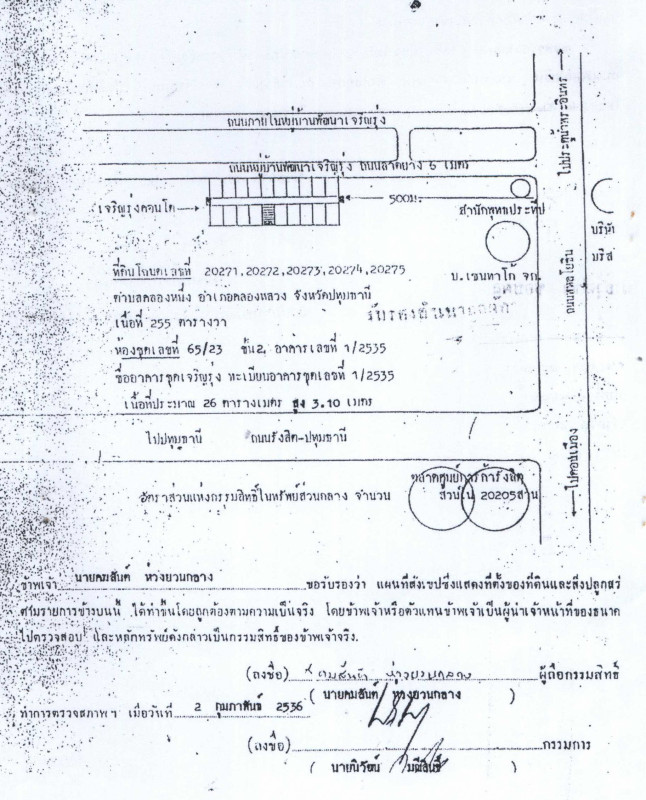 ไปประตูน้ำพระอินทร์
ถนนภายในหมู่บ้านพัฒนาเจริญรุ่ง
ถนนหมู่บ้านพัฒนาเจริญรุ่ง ถนนลาดยาง 6 เมตร
เจริญรุ่งคอนโด
500ม.
สำนักพุทธประทีป
บริษัท
บริส
ถนนพหลโยธิน
ที่ดินโฉนดเลขที่ 20271,20272,20273,20274,20275
บ.เซนทาโก้ จก.
ตำบลคลองหนึ่ง อำเภอคลองหลวง จังหวัดปทุมธานี
เนื้อที่ 255 ตารางวา
ห้องชุดเลขที่ 65/23 ชั้น2, อาคารเลขที่ 1/2535
ชื่ออาคารชุดเจริญรุ่ง ทะเบียนอาคารชุดเลขที่ 1/2535
เนื้อที่ประมาณ 26 ตารางเมตร สูง 3.10 เมตร
ไปปทุมธานี ถนนรังสิต-ปทุมธานี
ไปดอนเมือง
ตลาดศูนย์การค้ารังสิต
อัตราส่วนแห่งกรรมสิทธิ์ในทรัพย์ส่วนกลาง จำนวน ส่วนใน 20205ส่วน
ข้าพเจ้า นายคมสันต์ ห่วงยวนกลาง ขอรับรองว่า แผนที่สังเขปซึ่งแสดงที่ตั้งของที่ดินและสิ่งปลูกสร้
ตามรายการข้างบนนี้ ได้ทำขึ้นโดยถูกต้องตามความเป็นจริง โดยข้าพเจ้าหรือตัวแทนข้าพเจ้าเป็นผู้นำเจ้าหน้าที่ของธนาค
ไปตรวจสอบ และหลักทรัพย์ดังกล่าวเป็นกรรมสิทธิ์ของข้าพเจ้าจริง.
(ลงชื่อ) คมสันต์ ห่วงยวนกลาง ผู้ถือกรรมสิทธิ์
( นายคมสันต์ ห่วงยวนกลาง )
ทำการตรวจสภาพฯ เมื่อวันที่ 2 กุมภาพันธ์ 2536
(ลงชื่อ) กรรมการ
( นายนิวัฒน์ )